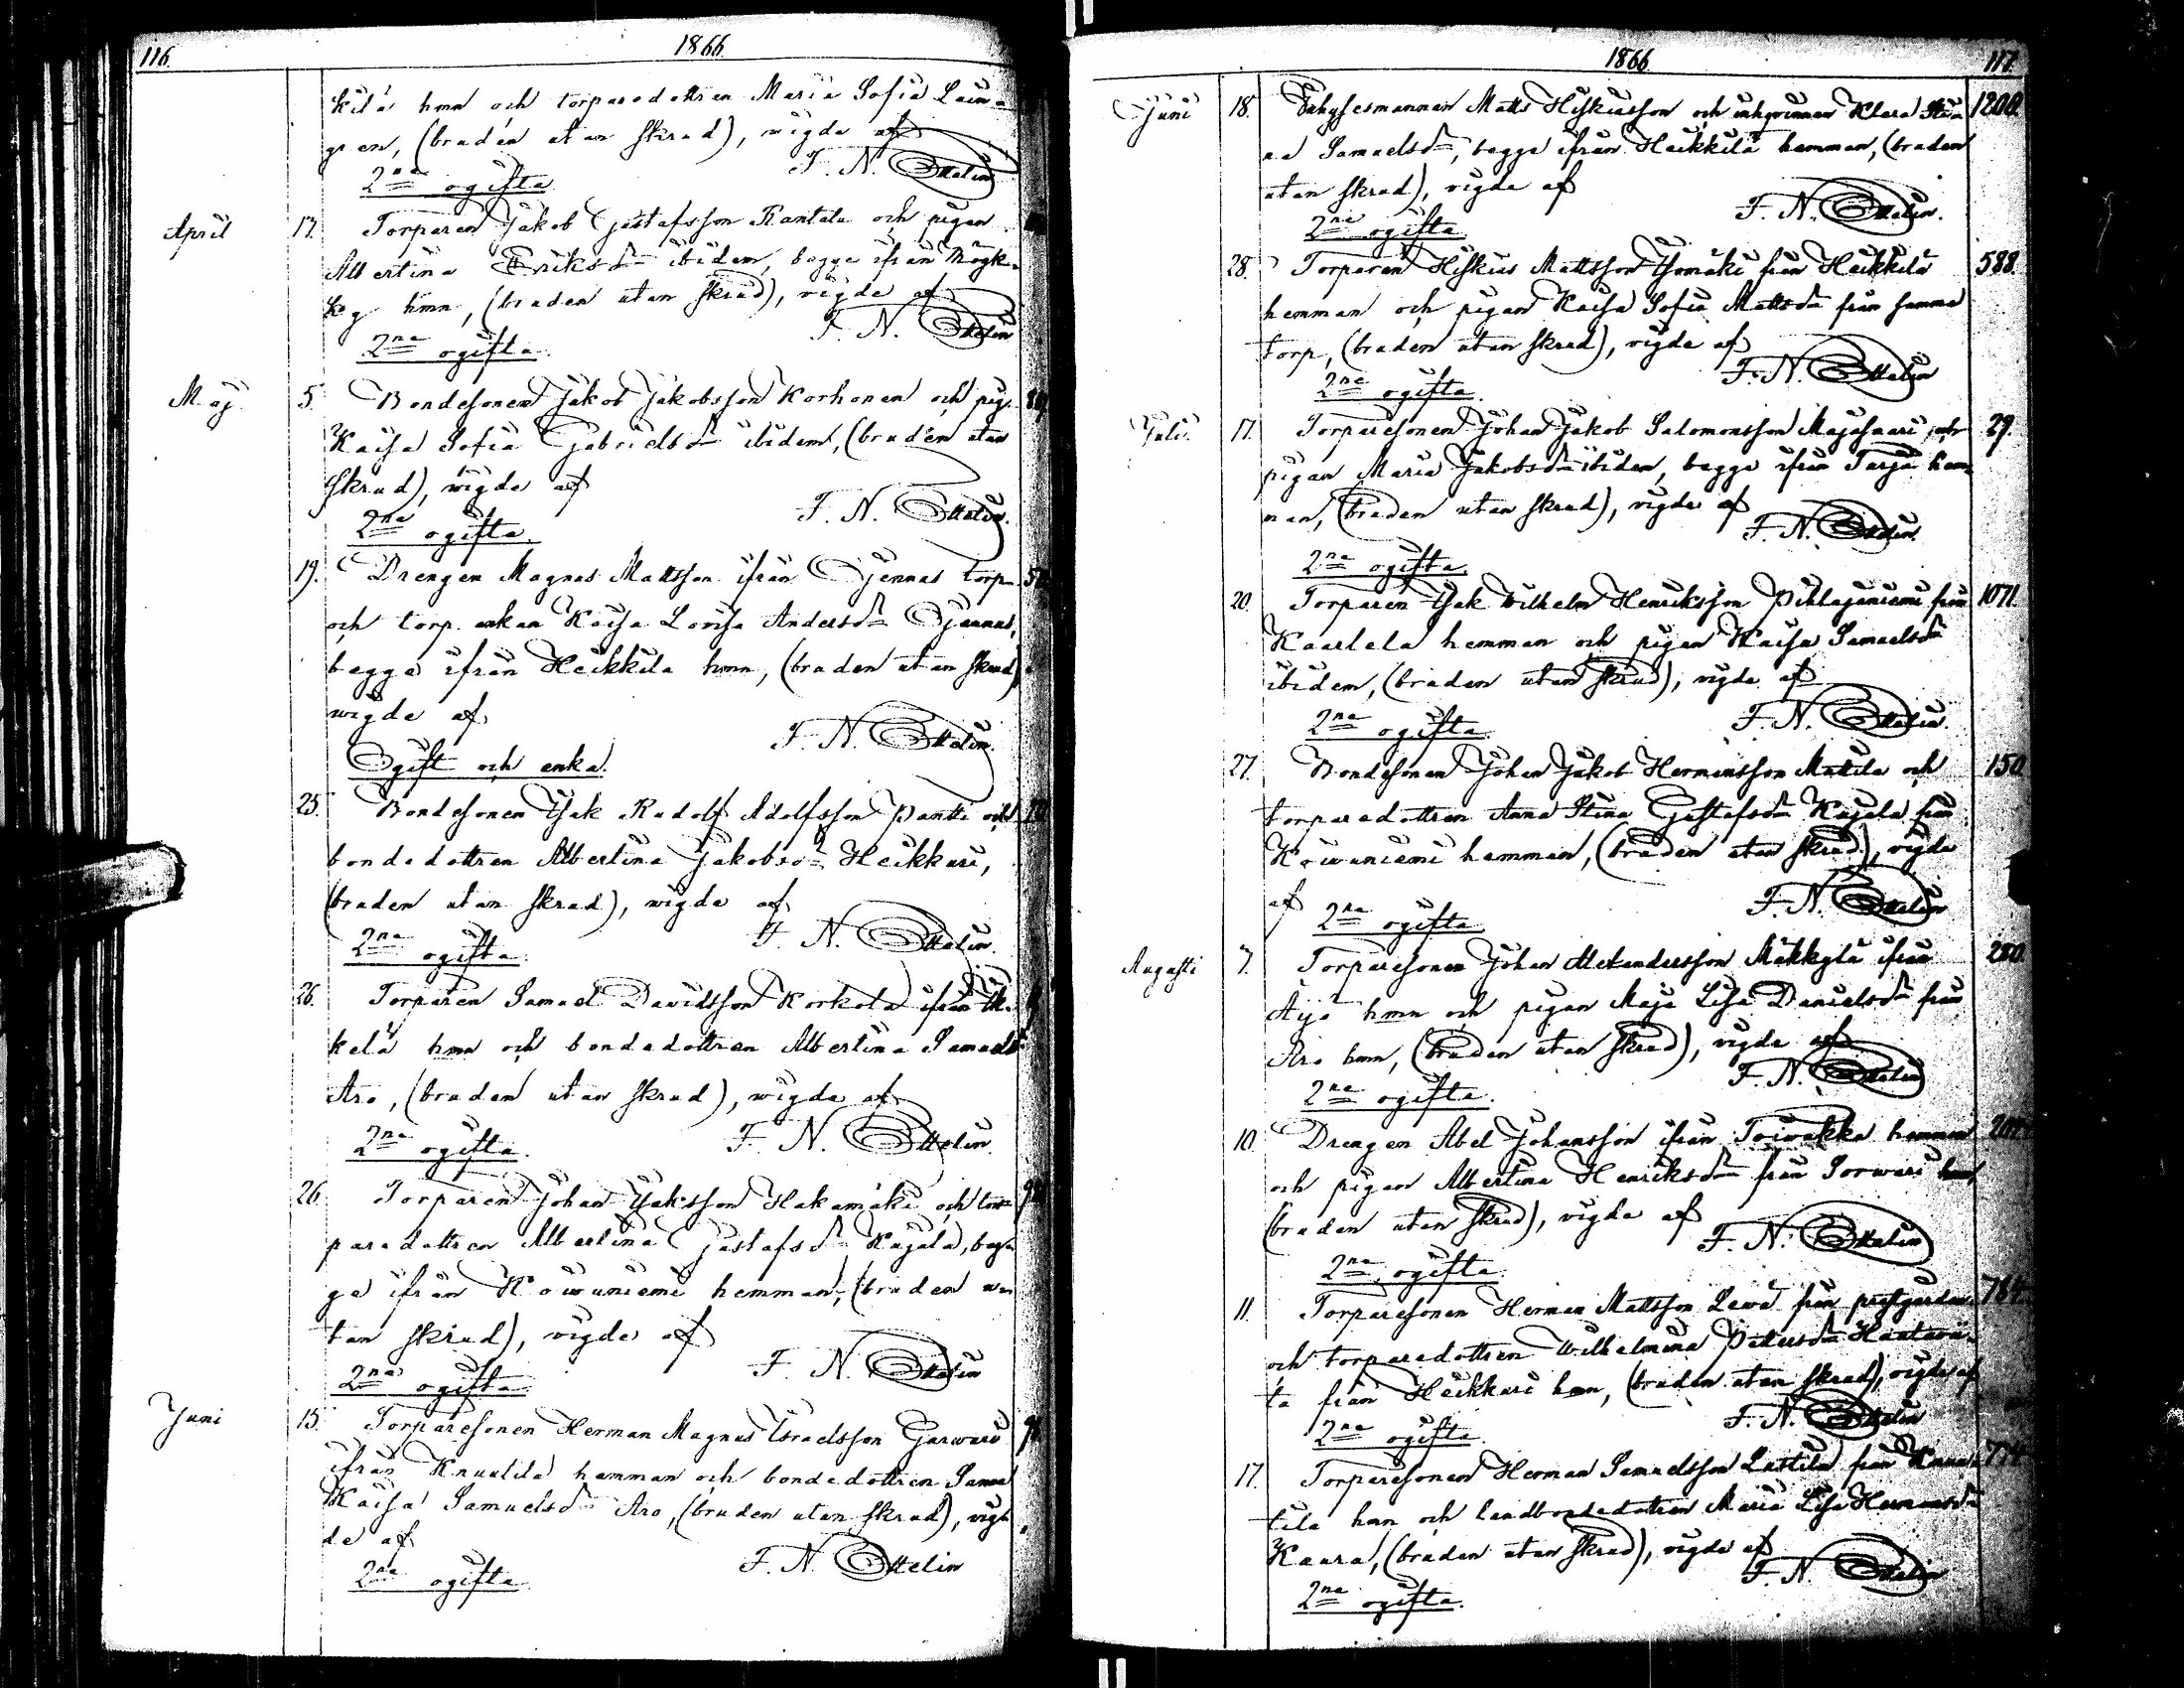 116. 1866.
kilä hmn och torparedottren Maria Sofia
gren, (bruden utan skrud), wigde af
F. N. Ottelin
2ne ogifta
April 17. Torparen Jakob Gustafsson Rantala och pigan
Albertina Eriksdr ibidem, begge ifrån
hmn, (bruden utan skrud), vigde af
F. N. Ottelin
2ne ogifta.
Maj 5. Bondesonen Jakob Jakobsson Korhonen och pig.
Kaisa Sofia Gabrielsdr ibidem, (bruden utan
skrud), wigde af
F. N. Ottelin.
2ne ogifta.
19. Drengen Magnus Mattsson ifrån Ojennus torp
och torp. enkan Kaisa Lovisa Andersdr Ojennus,
begge ifrån Heikkilä hmn, (bruden utan skrud)
wigde af
F. N. Ottelin.
Ogift och enka.
25. Bondesonen Isak Rudolf Adolfsson Pantti och
bondedottren Albertina Jakobsdr Heikkuri,
(bruden utan skrud), wigde af
F. N. Ottelin.
2ne ogifta.
26. Torparen Samuel Davidsson Korkola ifrån
kelä hmn och bondedottren Albertina Samuelsdr
Aro, (bruden utan skrud), wigde af
F. N. Ottelin.
2ne ogifta.
26. Torparen Johan Isaksson Hakamäki och tor-
paredottren Albertina Gustafsdr Kujala, beg-
ge ifrån Koiwuniemi hemman, (bruden u-
tan skrud), vigde af
F. N. Ottelin
2ne ogifta
Juni 15. Torparesonen Herman Magnus Israelsson Garwari
ifrån Knuutila hemman och bondedottren Sanna
Kaisa Samuelsdr Aro, (bruden utan skrud), vig-
de af
F. N. Ottelin
2ne ogifta
1866. 117.
Juni 18. Inhysesmannen Matts Hiskiasson och inhqvinnan Klara Sti- 1208.
na Samuelsdr, begge ifrån Heikkilä hemman, (bruden
utan skrud), vigde af
F. N. Ottelin.
2ne ogifta
28. Torparen Hiskias Mattsson Isomäki från Heikkilä 588.
hemman och pigan Kaisa Sofia Mattsdr från samma
torp, (bruden utan skrud), vigde af
F. N. Ottelin
2ne ogifta.
Juli. 17. Torparesonen Johan Jakob Salomonsson Majasaari och 29.
pigan Maria Jakobsdr ibidem, begge ifrån Tarja hem-
man, (bruden utan skrud), vigde af
F. N. Ottelin.
2ne ogifta.
20. Torparen Isak Wilhelm Henriksson Pihlajaniemi från 1071.
Kaarlela hemman och pigan Kaisa Samuelsdr
ibidem, (bruden utan skrud), vigde af
F. N. Ottelin.
2ne ogifta
27. Bondesonen Johan Jakob Hermansson Mattila och 150.
torparedottren Anna Stina Gustafsdr Kujala från
Koiwuniemi hemman, (bruden utan skrud), vigde
af
F. N. Ottelin
2ne ogifta.
Augusti 7. Torparesonen Johan Alexandersson Mäkkylä ifrån 280.
Äijö hmn och pigan Maja Lisa Danielsdr från
Aro hmn, (bruden utan skrud), vigde af
F. N. Ottelin
2ne ogifta.
10. Drengen Abel Johansson ifrån Toiwakka hemman
och pigan Albertina Henriksdr från Sorwari hmn,
(bruden utan skrud), vigde af
F. N. Ottelin
2ne ogifta.
11. Torparesonen Herman Mattsson Lewä från prestgården 784.
och torparedottren Wilhelmina Pettersdr Haataja-
ta från Heikkuri hmn, (bruden utan skrud), vigde af
F. N. Ottelin
2ne ogifta.
17. Torparesonen Herman Samuelsson Lastila från Knuu- 774.
tila hmn och landbondedottren Maria Lisa Hermansdr
Kaura, (bruden utan skrud), vigde af
F. N. Ottelin
2ne ogifta.